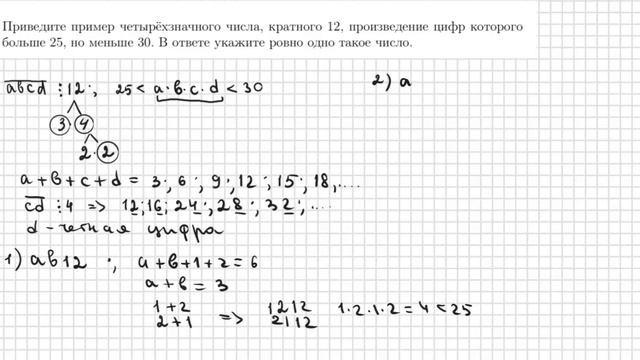 Приведите пример четырёхзначного числа, кратного 12, произведение цифр которого
больше 25, но меньше 30. В ответе укажите ровно одно такое число.
abcd ⋮ 12 ; 25 < a·b·c·d < 30
2) a
3 4
2·2
a+b+c+d = 3 ; 6 ; 9 ; 12 ; 15 ; 18, ....
cd ⋮ 4 => 12; 16; 24 ; 28 ; 32 ; ....
d - четная цифра
1) ab12 ; a+b+1+2=6
a+b=3
1+2
2+1 => 1212 1·2·1·2=4<25
2112